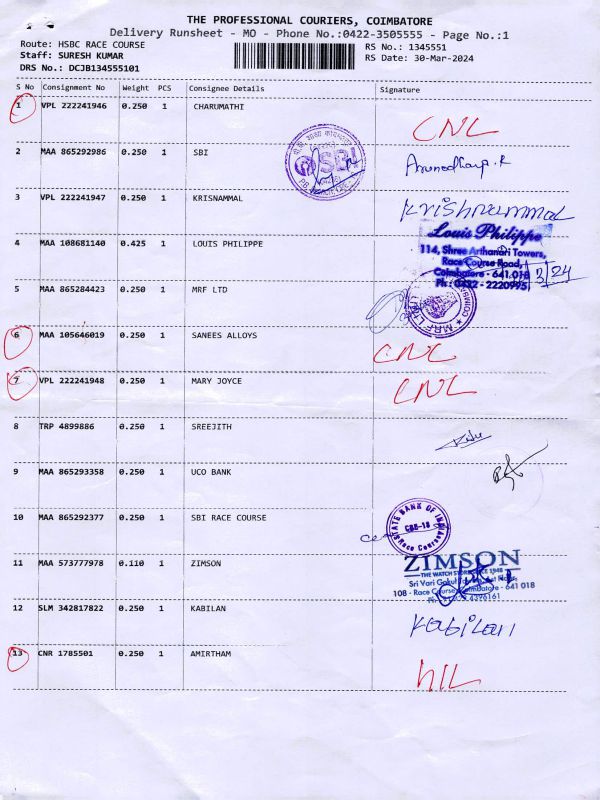 THE PROFESSIONAL COURIERS, COIMBATORE
Delivery Runsheet - MO - Phone No.:0422-3505555 - Page No.:1
Route: HSBC RACE COURSE
RS No.: 1345551
Staff: SURESH KUMAR
RS Date: 30-Mar-2024
DRS No.: DCJB134555101
S No Consignment No Weight PCS Consignee Details Signature
1 VPL 222241946 0.250 1 CHARUMATHI
CNL
2 MAA 865292986 0.250 1 SBI
SBI
3 VPL 222241947 0.250 1 KRISNAMMAL
Krishnammal
4 MAA 108681140 0.425 1 LOUIS PHILIPPE
Louis Philippe
114, Shree Arthanari Towers,
Race Course Road,
Coimbatore - 641.018
Ph : 0422 - 2220995
3/24
5 MAA 865284423 0.250 1 MRF LTD
MRF LTD
6 MAA 105646019 0.250 1 SANEES ALLOYS
CNL
7 VPL 222241948 0.250 1 MARY JOYCE
CNL
8 TRP 4899886 0.250 1 SREEJITH
9 MAA 865293358 0.250 1 UCO BANK
10 MAA 865292377 0.250 1 SBI RACE COURSE
STATE BANK OF
Race Course
11 MAA 573777978 0.110 1 ZIMSON
ZIMSON
THE WATCH STORE SINCE 1948
Sri Vari Gokul
108 - Race Course, Coimbatore - 641 018
12 SLM 342817822 0.250 1 KABILAN
Kabilan
13 CNR 1785501 0.250 1 AMIRTHAM
NIL